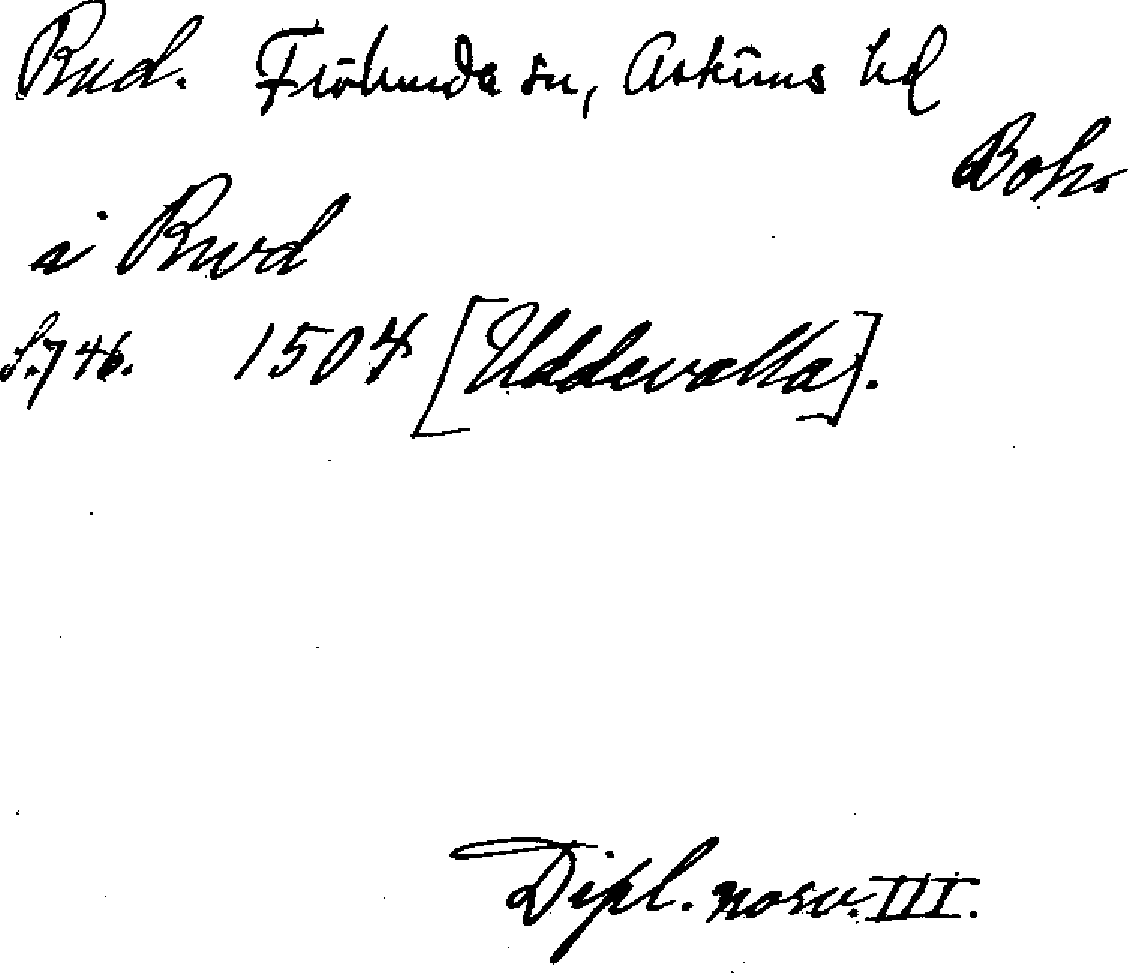 Rud. Frölunda sn, Askims hd
Boh.
i Rwd
S. 746. 1504 [Uddevalla].
Dipl. norv. III.